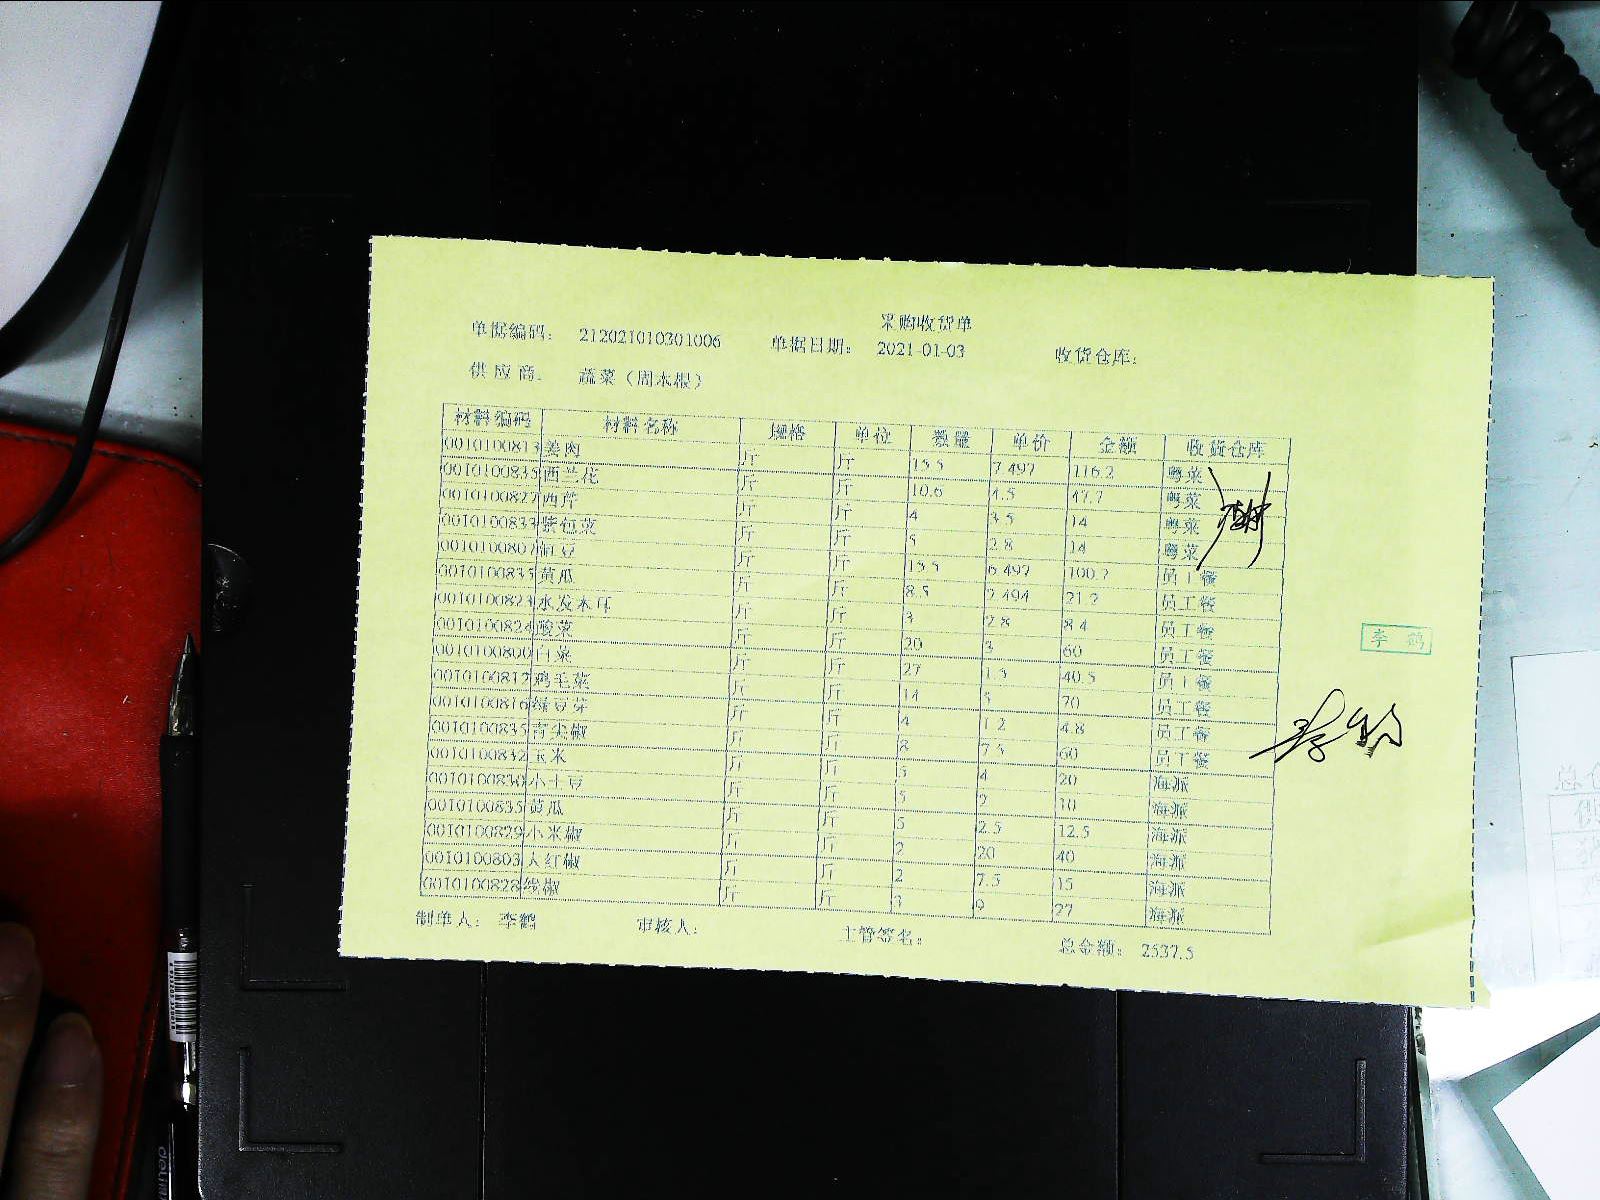 采购收货单
单据编码： 212021010301006 单据日期： 2021-01-03 收货仓库：
供应商： 蔬菜（周本根）
材料编码 材料名称 规格 单位 数量 单价 金额 收货仓库
0010100813 姜肉 斤 斤 15.5 7.497 116.2 粤菜
0010100835 西兰花 斤 斤 10.6 4.5 47.7 粤菜
0010100827 西芹 斤 斤 4 3.5 14 粤菜
0010100833 紫包菜 斤 斤 5 2.8 14 粤菜
0010100807 豇豆 斤 斤 15.5 6.497 100.7 员工餐
0010100835 黄瓜 斤 斤 8.5 2.494 21.2 员工餐
0010100823 水发木耳 斤 斤 3 2.8 8.4 员工餐
0010100824 酸菜 斤 斤 20 3 60 员工餐
0010100800 白菜 斤 斤 27 1.5 40.5 员工餐
0010100812 鸡毛菜 斤 斤 14 5 70 员工餐
0010100816 绿豆芽 斤 斤 4 1.2 4.8 员工餐
0010100835 青尖椒 斤 斤 8 7.5 60 员工餐
0010100832 玉米 斤 斤 5 4 20 海派
0010100830 小土豆 斤 斤 5 2 10 海派
0010100835 黄瓜 斤 斤 5 2.5 12.5 海派
0010100829 小米椒 斤 斤 2 20 40 海派
0010100803 大红椒 斤 斤 2 7.5 15 海派
0010100828 线椒 斤 斤 3 9 27 海派
制单人： 李鹤 审核人： 主管签名： 总金额： 2537.5
李鹤